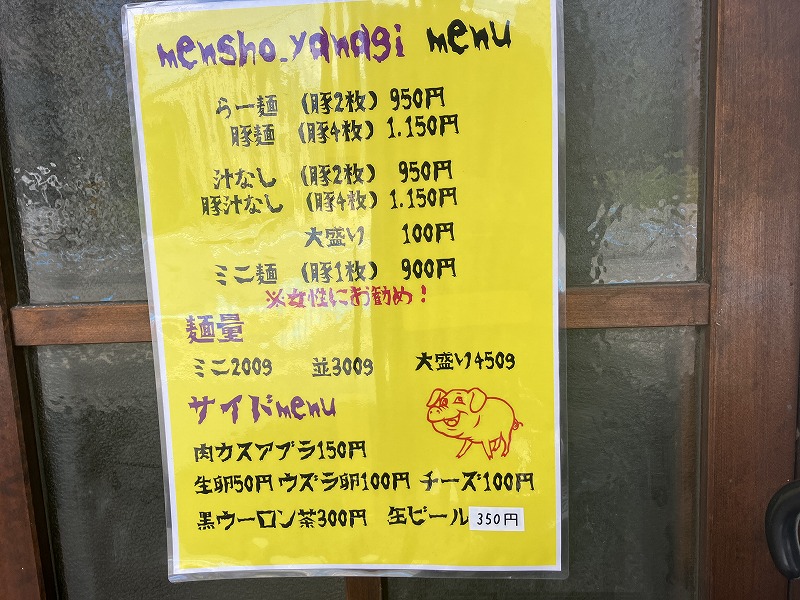 mensho_yanagi menu
らー麺 (豚2枚) 950円
豚麺 (豚4枚) 1.150円
汁なし (豚2枚) 950円
豚汁なし (豚4枚) 1.150円
大盛り 100円
ミニ麺 (豚1枚) 900円
※女性にお勧め!
麺量
ミニ200g 並300g 大盛り450g
サイドmenu
肉カスアブラ150円
生卵50円 ウズラ卵100円 チーズ100円
黒ウーロン茶300円 生ビール350円